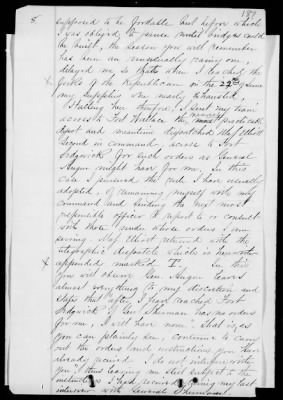 8.
181
supposed to be fordable but before which
I was obliged to pause until bridges could
be built, the season you will remember
has been an unusually rainy one,
delayed me so that when I reached the
forks of the Republican on the 22nd June
my supplies were nearly exhausted,
Halting here therefore, I sent my train
across to Fort Wallace the nearest practicable
depot and meantime dispatched Maj Elliott
second in command, across to Fort
Sedgwick for such orders as General
Augur might have for me. In this
case I pursued the rule I have usually
adopted, of remaining myself with my
command and sending the next most
responsible officer to report to or consult
with those under whose orders I am
serving. Maj Elliott returned with the
telegraphic dispatch which is herewith
appended marked "I". In this
you will observe Gen. Augur leaves
almost everything to my discretion and
states that after I have reached Fort
Sedgwick "if Gen. Sherman has no orders
for me, I will have none". That is, as
you can plainly see, continue to carry
out the orders and instructions you have
already received. I do not interfere with
you, thus leaving me still subject to the
instructions I had received during my last
interview with General Sherman.